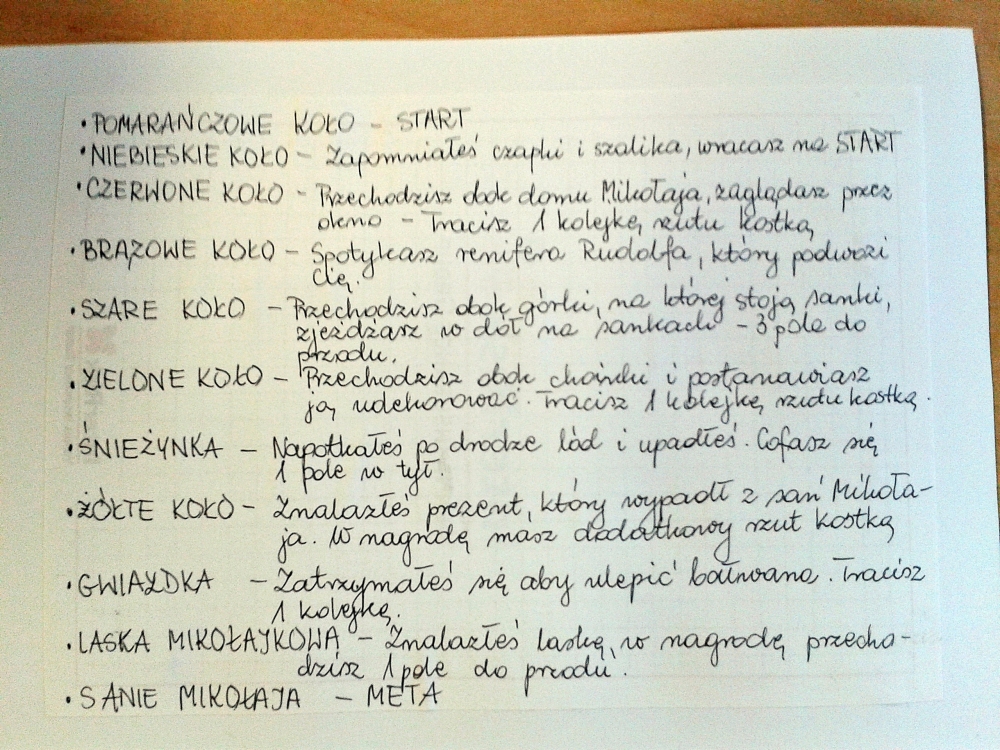 • POMARAŃCZOWE KOŁO – START
• NIEBIESKIE KOŁO – Zapomniałeś czapki i szalika, wracasz na START
• CZERWONE KOŁO – Przechodzisz obok domu Mikołaja, zaglądasz przez
okno – Tracisz 1 kolejkę rzutu kostką
• BRĄZOWE KOŁO – Spotykasz renifera Rudolfa, który podwozi
Cię.
• SZARE KOŁO – Przechodzisz obok górki, na której stoją sanki,
zjeżdżasz w dół na sankach – 3 pola do
przodu.
• ZIELONE KOŁO – Przechodzisz obok choinki i postanawiasz
ją udekorować. Tracisz 1 kolejkę rzutu kostką.
• ŚNIEŻYNKA – Napotkałeś po drodze lód i upadłeś. Cofasz się
1 pole w tył.
• ŻÓŁTE KOŁO – Znalazłeś prezent, który wypadł z sań Mikoła-
ja. W nagrodę masz dodatkowy rzut kostką
• GWIAZDKA – Zatrzymałeś się aby ulepić bałwana. Tracisz
1 kolejkę.
• LASKA MIKOŁAJKOWA – Znalazłeś laskę, w nagrodę przecho-
dzisz 1 pole do przodu.
• SANIE MIKOŁAJA – META